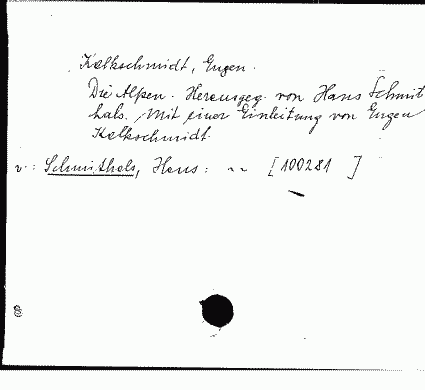 Kalkschmidt, Eugen.
Die Alpen. Herausgeg. von Hans Schmit
hals. Mit einer Einleitung von Eugen
Kalkschmidt
v.: Schmithals, Hans: ~~ [100281 ]